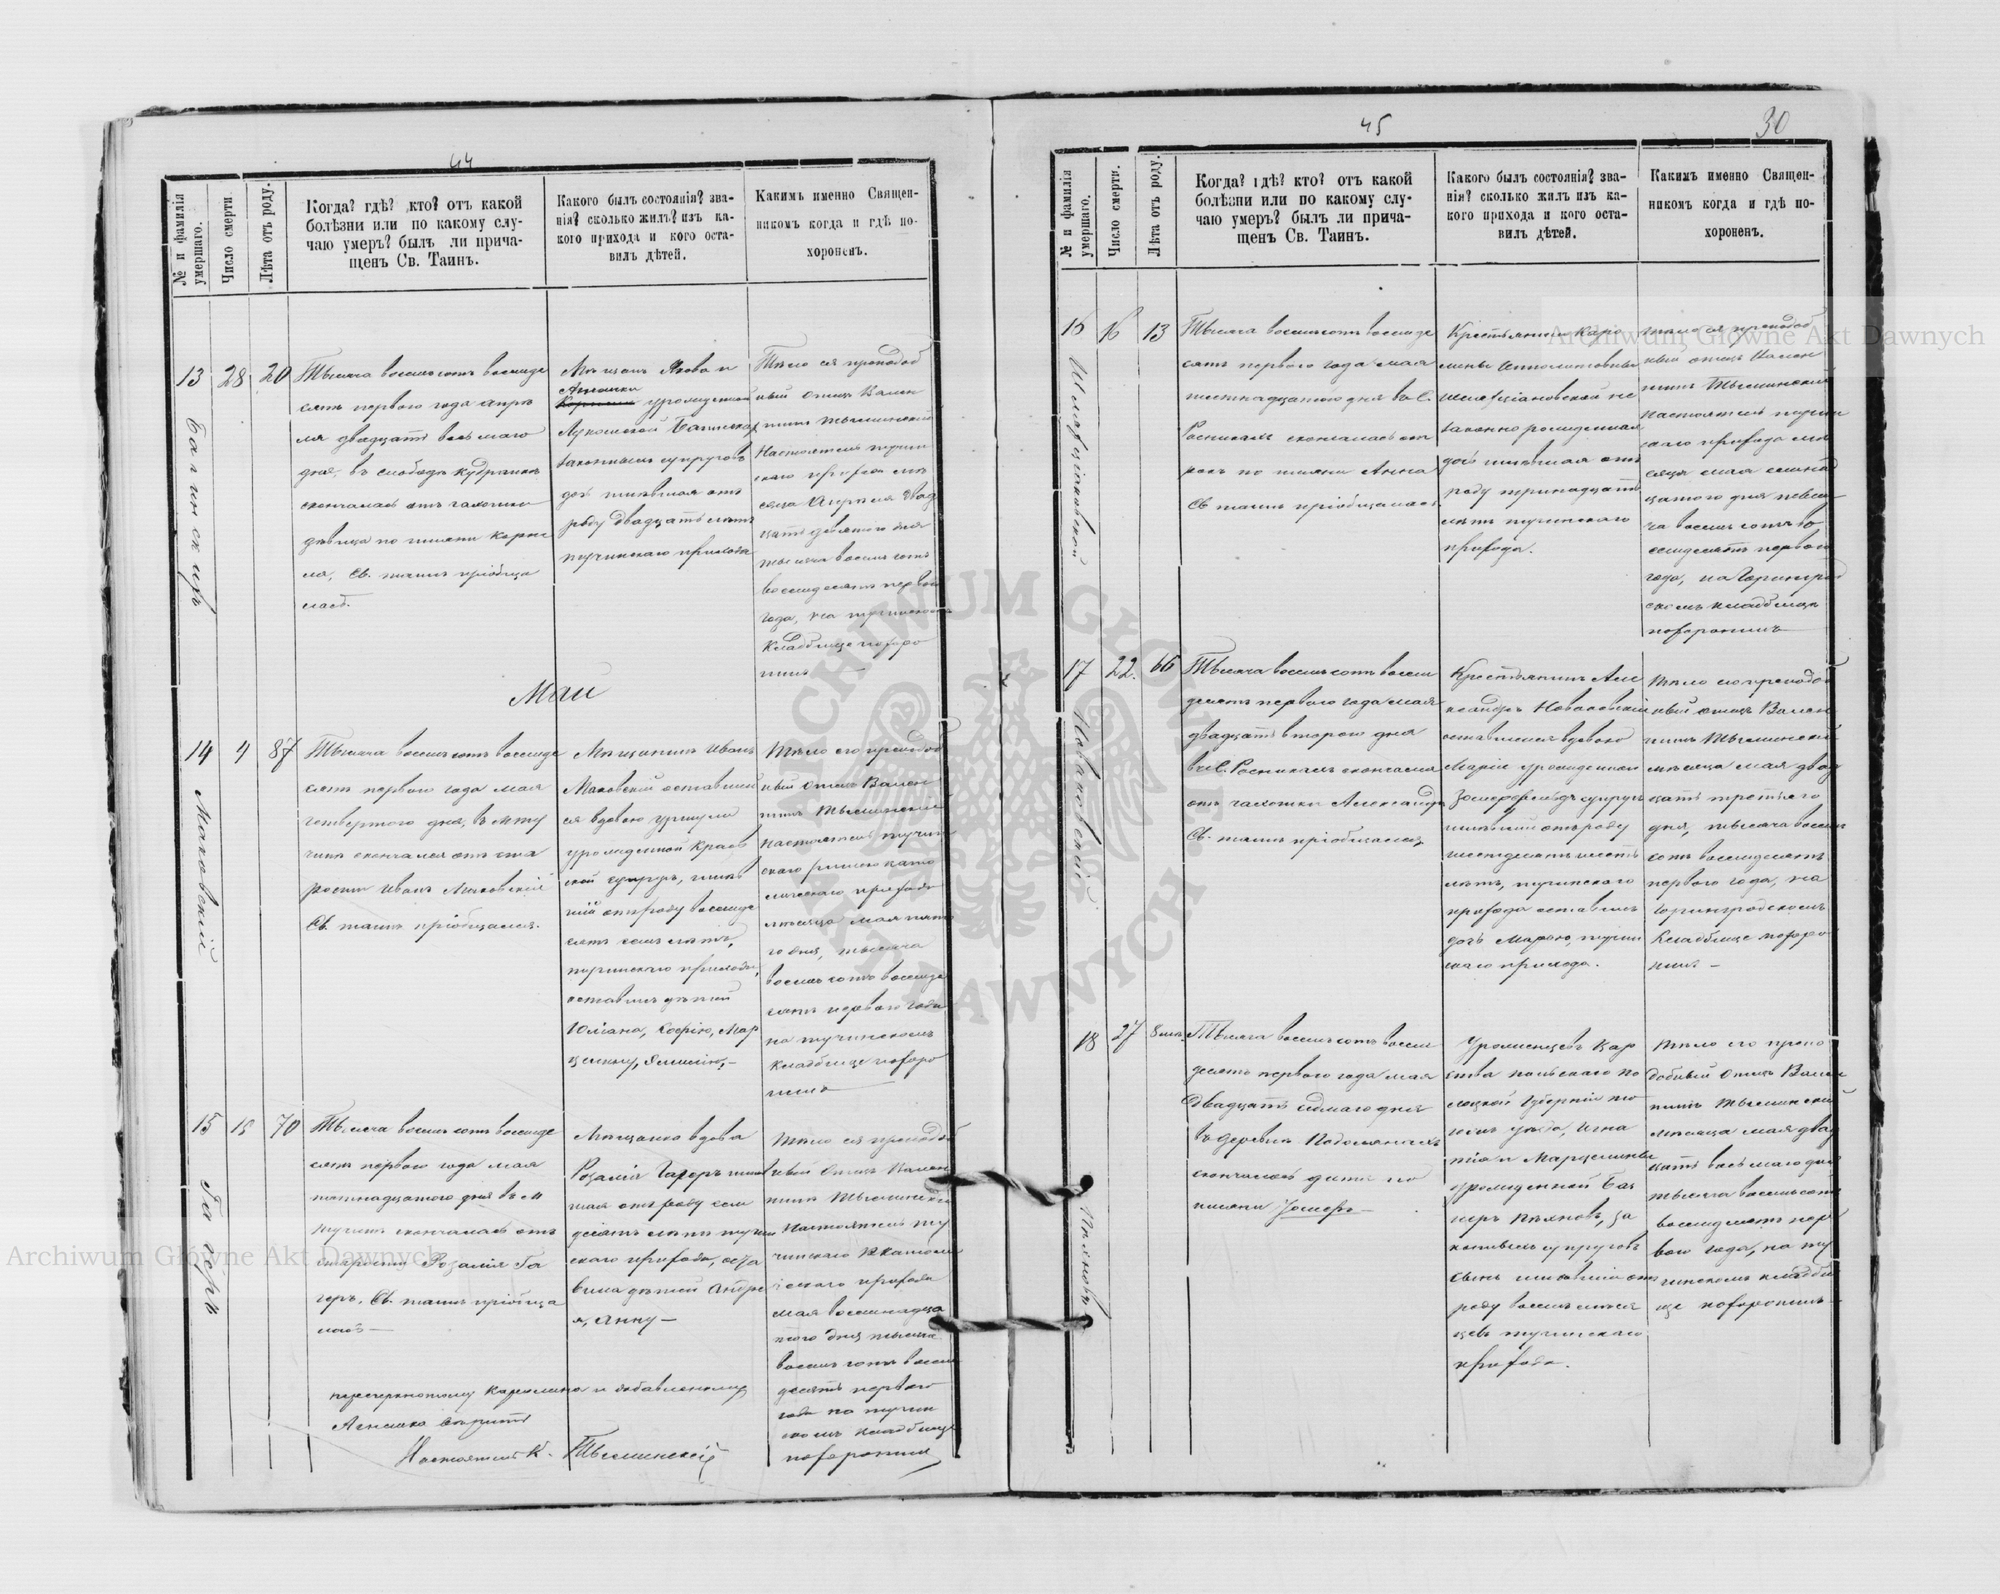 44
№ и фамилія умершаго.
Число смерти
Лѣта отъ роду.
Когда? гдѣ? кто? отъ какой
болѣзни или по какому слу-
чаю умеръ? былъ ли прича-
щенъ Св. Таинъ.
Какого былъ состоянія? зва-
нія? сколько жилъ? изъ ка-
кого прихода и кого оста-
вилъ дѣтей.
Какимъ именно Священ-
никомъ когда и гдѣ по-
хороненъ.
13
28
20
Тысяча восемьсотъ восемьде
сятъ перваго года апрѣ
ля двадцать восьмаго
дня, въ слободѣ
скончалась отъ чахотки
дѣвица по имени Каро
ла, Св. таинъ пріобща
лась.
Мѣщанъ Якова и
урожденной
законныхъ супруговъ
дочь имѣвшая отъ
роду двадцать лѣтъ
тучинскаго прихода
Тѣло ея преподоб
ный отецъ Вален
тинъ Тысминскій
Настоятель тучин
скаго прихода мѣ
сяца Апрѣля двад
цать девятого дня
тысяча восемьсотъ
восемьдесятъ перваго
года, на тучинскомъ
Кладбище похоро
нилъ
Май
14
Маковскій
4
87
Тысяча восемьсотъ восемьде
сятъ перваго года мая
четвертого дня, въ мту
чинѣ скончался отъ ста
рости Иванъ Маковскій
Св. таинъ пріобщался.
Мѣщанинъ Иванъ
Маковскій оставивши
ся вдовою
урожденной
отъ роду восемьде
сятъ семь лѣтъ,
тучинскаго прихода,
оставилъ дѣтей
Юліана, Софію, Мар
целину, Эмилію,-
Тѣло его преподоб
ный Отецъ Вален
тинъ Тысминскій
Настоятель тучин
скаго римско като
лическаго прихода
мѣсяца мая пято
го дня, тысяча
восемьсотъ восемьде
сятъ перваго года
на тучинскомъ
Кладбище похоро
нилъ
15
Гагеръ
15
70
Тысяча восемьсотъ восемьде
сятъ перваго года мая
пятнадцатого дня въ м
тучинѣ скончалась отъ
старости Розалія Га
геръ. Св. таинъ пріобща
лась-
Мѣщанка вдова
Розалія Гагеръ имѣв
шая отъ роду семь
десятъ лѣтъ тучин
скаго прихода, оста
вила дѣтей Андре
я, Анну-
Тѣло ея преподоб
ный Отецъ Вален
тинъ Тысминскій
Настоятель ту
чинскаго Р Католи
ческаго прихода
мая восемнадца
того дня тысяча
восемьсотъ восемь
десятъ перваго
года на тучин
скомъ кладбище
похоронилъ
перечеркнотому Каролина и добавленному
Агнешка вѣрить
Настоятель К. Тысминскій
45
30
№ и фамилія умершаго.
Число смерти.
Лѣта отъ роду.
Когда? гдѣ? кто? отъ какой
болѣзни или по какому слу-
чаю умеръ? былъ ли прича-
щенъ Св. Таинъ.
Какого былъ состоянія? зва-
нія? сколько жилъ изъ ка-
кого прихода и кого оста-
вилъ дѣтей.
Какимъ именно Священ-
никомъ когда и гдѣ по-
хороненъ.
16
16
13
Тысяча восемьсотъ восемьде
сятъ перваго года мая
шестнадцатого дня въ С.
скончалась
по имени Анна
Св таинъ пріобщалась
Крестьянки Каро
лины Ипполитовны
не
законно рожденная
дочь имѣвшая отъ
роду тринадцать
лѣтъ тучинскаго
прихода.
Тѣло ея преподоб
ный отецъ Вален
тинъ Тысминскій
Настоятель тучин
скаго прихода мѣ
сяца мая
дня тыся
ча восемьсотъ во
семьдесятъ перваго
года, на Горинград
скомъ кладбище
похоронилъ
17
Новаковскій
22.
66
Тысяча восемьсотъ восемь
десятъ перваго года мая
двадцать второго дня
въ С. скончался
отъ чахотки Александръ
Св. таинъ пріобщался
Крестьянинъ Але
ксандръ Новаковскій
оставившися вдовою
Марію урожденной
супругъ
имѣвшій отъ роду
шестьдесятъ шесть
лѣтъ, тучинскаго
прихода оставилъ
дочь Марію, тучин
скаго прихода.
Тѣло его преподоб
ный Отецъ Вален
тинъ Тысминскій
мѣсяца мая двад
цать третьяго
дня, тысяча восемь
сотъ восемьдесятъ
перваго года, на
Горинградскомъ
Кладбище похоро
нилъ-
18
27
8 мѣс.
Тысяча восемьсотъ восемь
десятъ перваго года мая
Двадцать седмаго дня
въ деревнѣ Подолянахъ
скончалось дитя по
имени Іосифъ-
Уроженцевъ Цар
ства польскаго По
лоцкой Губерніи
уѣзда, Игна
тія и Марцелины
урожденной
за
конныхъ супруговъ
сынъ имѣвшій отъ
роду восемь мѣся
цевъ тучинскаго
прихода.
Тѣло его препо
добный Отецъ Вален
тинъ Тысминскій
мѣсяца мая двад
цать восьмаго дня
тысяча восемьсотъ
восемьдесятъ пер
ваго года, на ту
чинскомъ кладби
ще похоронилъ-
Archiwum Główne Akt Dawnych
Archiwum Główne Akt Dawnych
ARCHIWUM GŁÓWNE AKT DAWNYCH